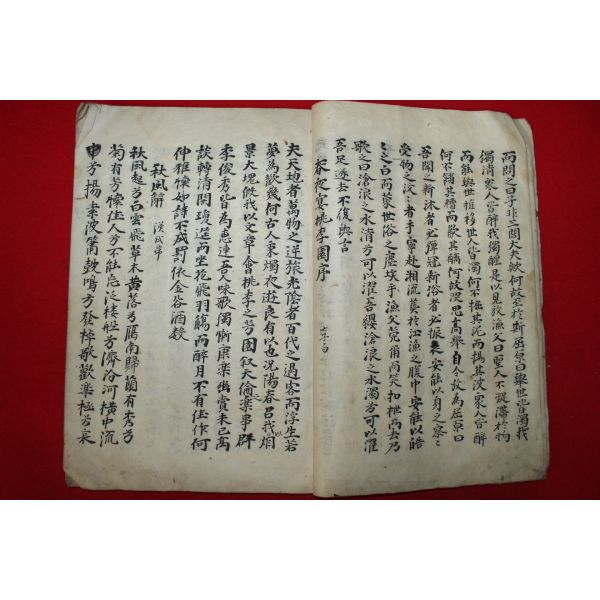 而問之曰子非三閭大夫歟何故至於斯屈原曰擧世皆濁我
獨淸衆人皆醉我獨醒是以見放漁父曰聖人不凝滯於物
而能與世推移世人皆濁何不淈其泥而揚其波衆人皆醉
何不餔其糟而歠其醨何故深思高擧自令放爲屈原曰
吾聞之新沐者必彈冠新浴者必振衣安能以身之察察
受物之汶汶者乎寧赴湘流葬於江漁之腹中安能以皓
皓之白而蒙世俗之塵埃乎漁父莞爾而笑扣枻而去乃
歌之曰滄浪之水淸兮可以濯吾纓滄浪之水濁兮可以濯
吾足遂去不復與言
春夜宴桃李園序 李白
夫天地者萬物之逆旅光陰者百代之過客而浮生若
夢爲歡幾何古人秉燭夜遊良有以也況陽春召我以烟
景大塊假我以文章會桃李之芳園叙天倫之樂事群
季俊秀皆爲惠連吾人咏歌獨慚康樂幽賞未已高
談轉淸開瓊筵而坐花飛羽觴而醉月不有佳作何
伸雅懷如詩不成罰依金谷酒數
秋風辭 漢武帝
秋風起兮白雲飛草木黃落兮鴈南歸蘭有秀兮
菊有芳懷佳人兮不能忘泛樓舡兮濟汾河橫中流
兮揚素波簫鼓鳴兮發棹歌歡樂極兮哀